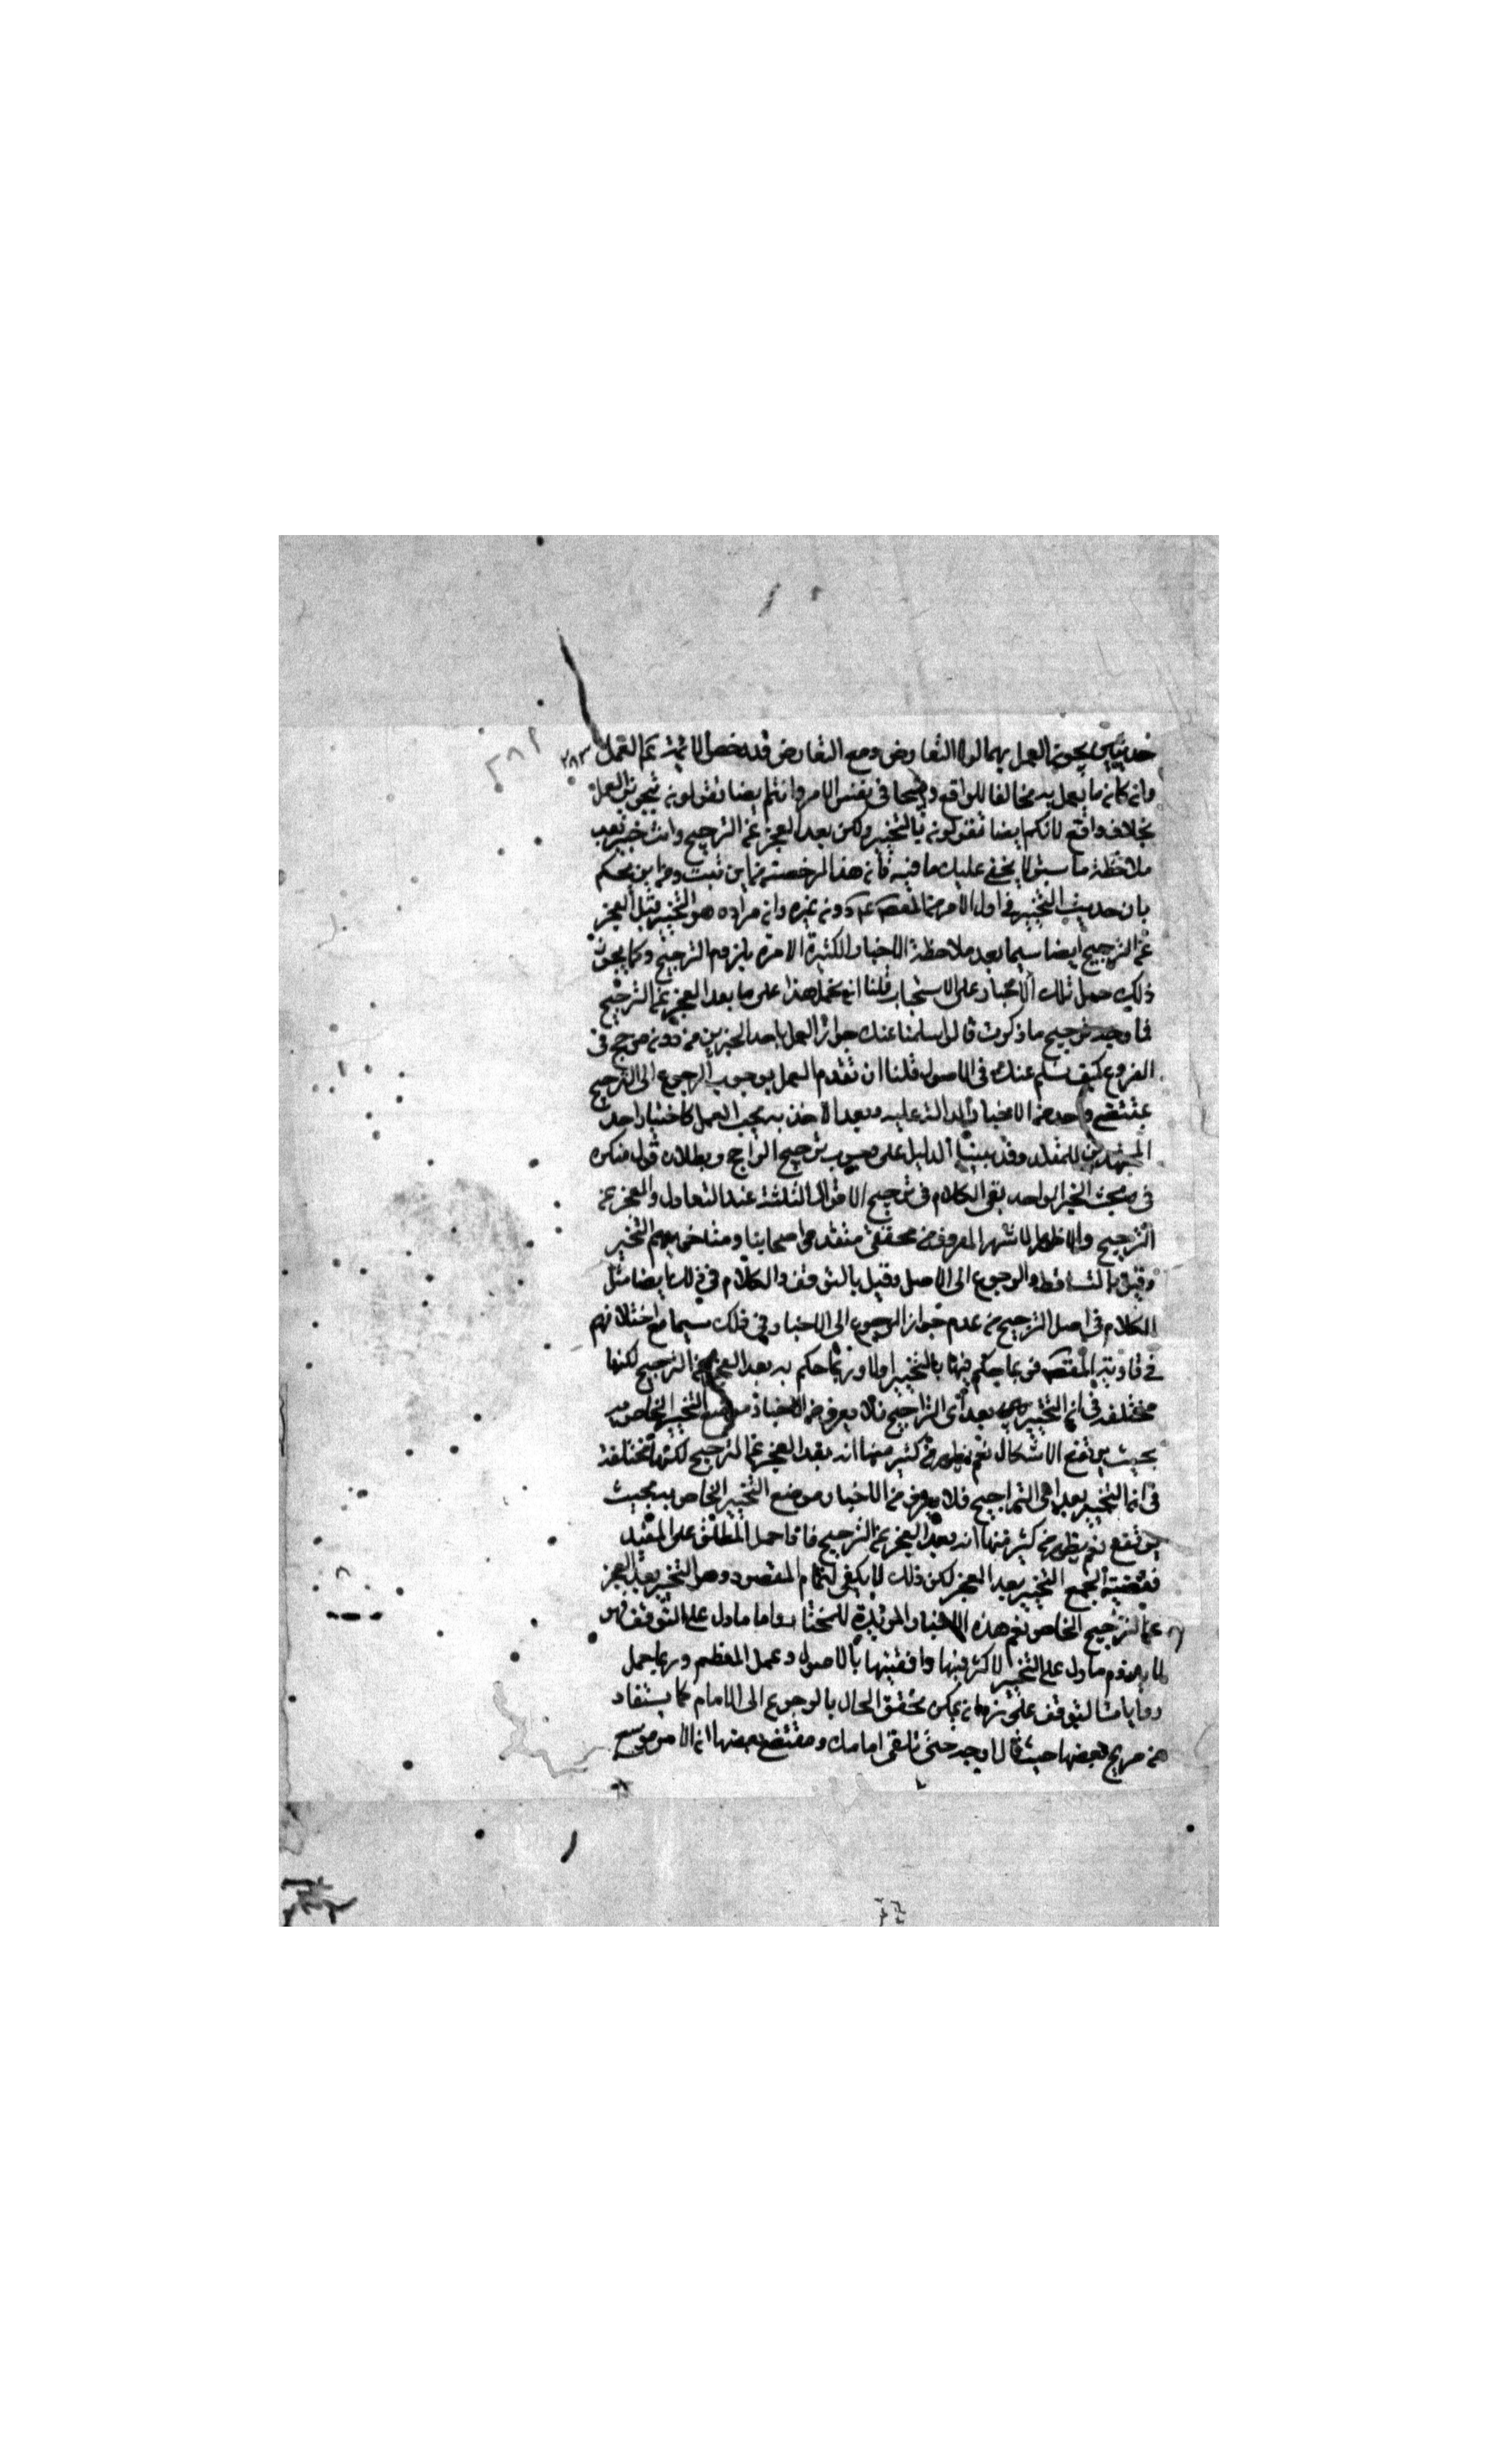 حديثين يجوز العمل بهما لولا التعارض ومع التعارض قد رخص الائمة عم العمل ٢٨٣
وان كان ما يعمل به مخالفا للواقع وقبيحا في نفس الامر وانتم ايضا تقولون تجويز العمل
بخلاف واقع لانكم ايضا تقولون بالتخيير ولكن بعد العجز عن الترجيح وانت خبير بعد
ملاحظة ما سبق لا يخفى عليك ما فيه فان هذا الرخصة من اين ثبت ومن اين يحكم
بان حديث التخيير في اول الامر من المعصوم ع دونه غيره وانه مراده هو التخيير قبل العجز
عن الترجيح ايضا سيما بعد ملاحظة الاخبار الكثيرة الامرة بلزوم الترجيح وكما يجوز
ذلك حمل تلك الاخبار على الاستحباب قلنا ان نحمل هذا على ما بعد العجز عن الترجيح
فما وجه ترجيح ما ذكرت قال لو سلمنا عنك جواز العمل باحد الخبرين من دونه مرجح في
الفروع كيف نسلم عنك في الاصول قلنا ان تقدم العمل بوجوب الرجوع الى الترجيح
بمقتضى واحد من الاخبار الدالة عليه وبعد الاخذ به يجب العمل كاختيار احد
المجتهدين للمقلد وقد بينا الدليل على وجوب ترجيح الراجح وبطلان قول منكره
في مبحث الخبر الواحد بقى الكلام في ترجيح الاقوال الثلثة عند التعادل والعجز عن
الترجيح والاظهر الاشهر المعروف من محققي متقدمي اصحابنا ومتاخريهم التخيير
وقيل بالتساقط والرجوع الى الاصل وقيل بالتوقف والكلام في ذلك ايضا مثل
الكلام في اصل الترجيح من عدم جواز الرجوع الى الاخبار في ذلك سيما مع اختلافهم
في تادية المقصود فربما حكم فيها بالتخيير اولا وربما حكم به بعد العجز عن الترجيح لكنها
مختلفة في ان التخيير بعد اي التراجيح فلا يعرف من الاخبار موضع التخيير الخاص به
بحيث يرتفع الاشكال نعم يظهر من كثير منها انه بعد العجز عن الترجيح لكنها مختلفة
في ان التخيير بعد اي التراجيح فلا يعرف من الاخبار موضع التخيير الخاص به بحيث
يرتفع نعم يظهر من كثير منها انه بعد العجز عن الترجيح فاذا حمل المطلق على المقيد
فقضية الجمع التخيير بعد العجز لكن ذلك لا يكفي لتمام المقصود وهو التخيير بعد العجز
عن الترجيح الخاص نعم هذه الاخبار المؤيدة للمختار واما ما دل على التوقف فهو
لا يقاوم ما دل على التخيير لاكثريتها وافقيتها بالاصول وعمل المعظم وربما حمل
روايات التوقف على زمان يمكن تحقق الحال بالرجوع الى الامام كما يستفاد
من صريح بعضها حيث قال ارجه حتى تلقى امامك ومقتضى بعضها ان الامر موسع